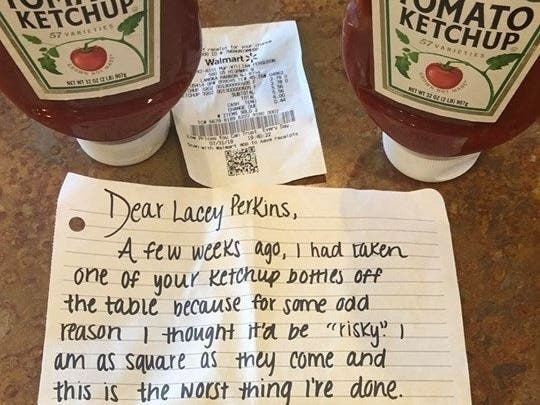 TOMATO
KETCHUP
57 VARIETIES
GROWN NOT MADE
NET WT 32 OZ (2 LB) 907g
Walmart
Low Prices You Can Trust. Every Day.
TOMATO
KETCHUP
57 VARIETIES
GROWN NOT MADE
NET WT 32 OZ (2 LB) 907g
Dear Lacey Perkins,
A few weeks ago, I had taken
one of your Ketchup bottles off
the table because for some odd
reason I thought it'd be "risky". I
am as square as they come and
this is the worst thing I've done.